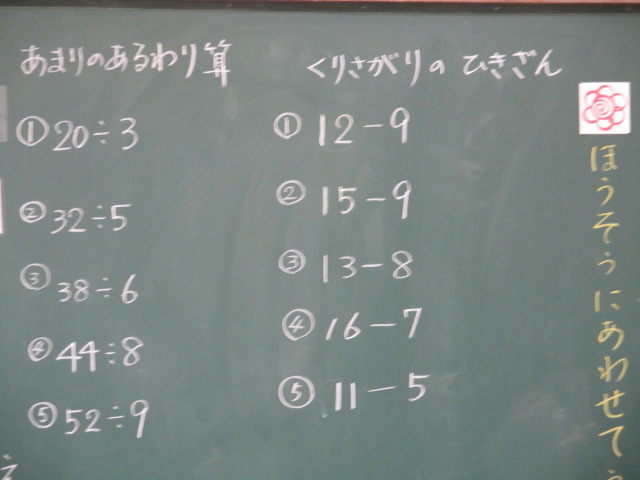 あまりのあるわり算
①20÷3
②32÷5
③38÷6
④44÷8
⑤52÷9
くりさがりの ひきざん
①12-9
②15-9
③13-8
④16-7
⑤11-5
ほうそうにあわせて